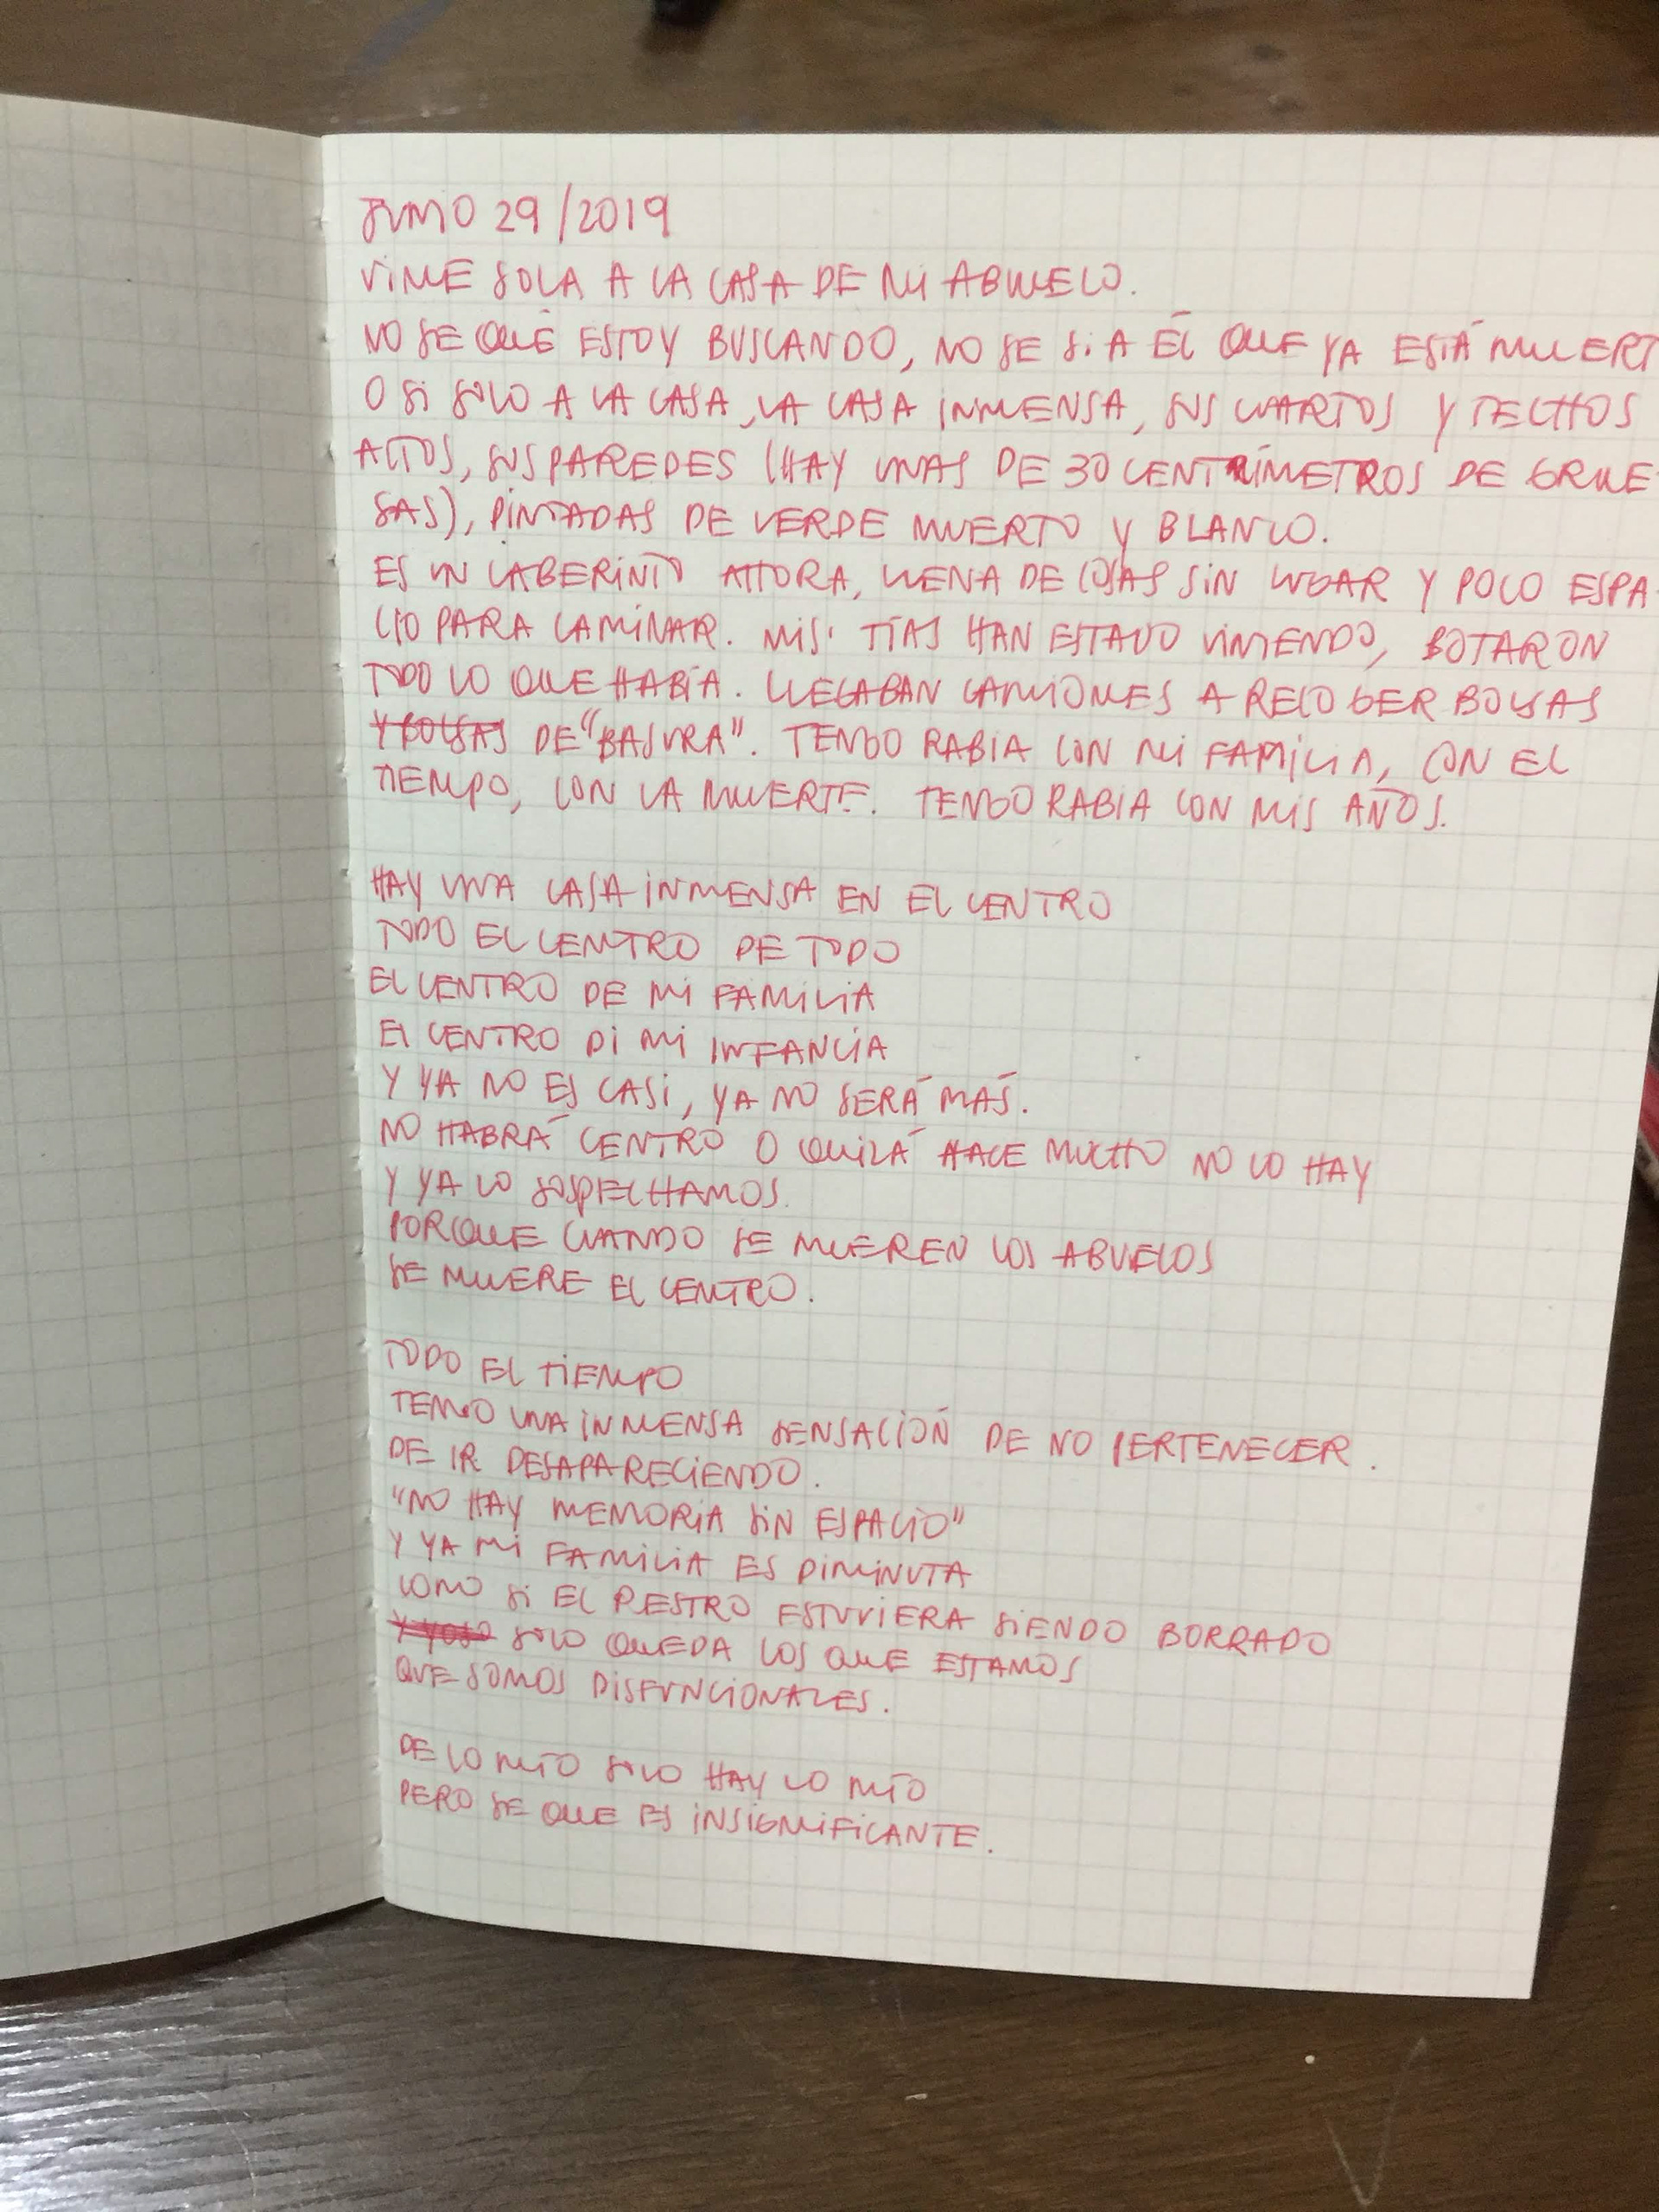 JUNIO 29/2019
VINE SOLA A LA CASA DE MI ABUELO.
NO SE QUÉ ESTOY BUSCANDO, NO SE SI A ÉL QUE YA ESTÁ MUERT
O SI SOLO A LA CASA, LA CASA INMENSA, SUS CUARTOS Y TECHOS
ALTOS, SUS PAREDES (HAY UNAS DE 30 CENTÍMETROS DE GRUE-
SAS), PINTADAS DE VERDE MUERTO Y BLANCO.
ES UN LABERINTO AHORA, LLENA DE COSAS SIN LUGAR Y POCO ESPA-
CIO PARA CAMINAR. MIS TÍAS HAN ESTADO VINIENDO, BOTARON
TODO LO QUE HABÍA. LLEGABAN CAMIONES A RECOGER BOLSAS
Y BOLSAS DE "BASURA". TENGO RABIA CON MI FAMILIA, CON EL
TIEMPO, CON LA MUERTE. TENGO RABIA CON MIS AÑOS.
HAY UNA CASA INMENSA EN EL CENTRO
TODO EL CENTRO DE TODO
EL CENTRO DE MI FAMILIA
El CENTRO DI MI INFANCIA
Y YA NO ES CASI, YA NO SERÁ MÁS.
NO HABRÁ CENTRO O QUIZÁ HACE MUCHO NO LO HAY
Y YA LO SOSPECHAMOS.
PORQUE CUANDO SE MUEREN LOS ABUELOS
SE MUERE EL CENTRO.
TODO EL TIEMPO
TENGO UNA INMENSA SENSACIÓN DE NO PERTENECER.
DE IR DESAPARECIENDO.
"NO HAY MEMORIA SIN ESPACIO"
Y YA MI FAMILIA ES DIMINUTA
COMO SI EL RESTRO ESTUVIERA SIENDO BORRADO
SOLO QUEDA LOS QUE ESTAMOS
QUE SOMOS DISFUNCIONALES.
DE LO MÍO SOLO HAY LO MÍO
PERO SE QUE ES INSIGNIFICANTE.